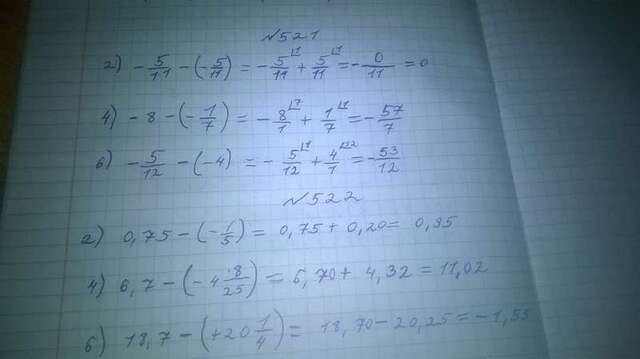 №521
2) -5/11 - (-5/11) = -5/11 + 5/11 = -0/11 = 0
4) -8 - (-1/7) = -8/1 + 1/7 = -57/7
6) -5/12 - (-4) = -5/12 + 4/1 = -53/12
№522
2) 0,75 - (-1/5) = 0,75 + 0,20 = 0,95
4) 6,7 - (-4 8/25) = 6,70 + 4,32 = 11,02
6) 18,7 - (+20 1/4) = 18,70 - 20,25 = -1,55